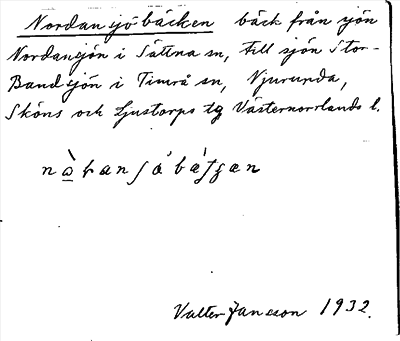 Nordansjöbäcken bäck från sjön
Nordansjön i Sättna sn, till sjön Stor-
Bandsjön i Timrå sn, Njurunda,
Sköns och Ljustorps tg Västernorrlands l.
Valter Jansson 1932.